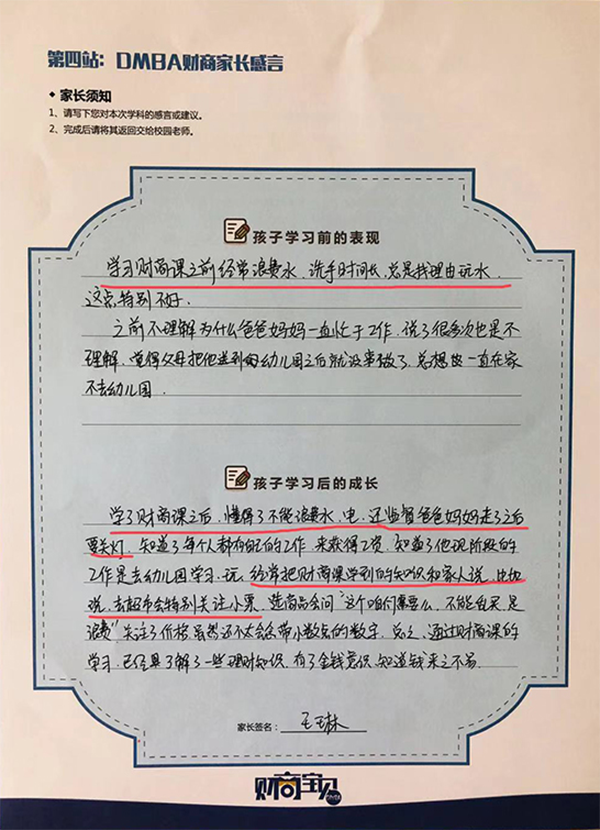 第四站：DMBA财商家长感言
◆ 家长须知
1、请写下您对本次学科的感言或建议。
2、完成后请将其返回交给校园老师。
孩子学习前的表现
学习财商课之前经常浪费水、洗手时间长、总是找理由玩水
这点特别不好.
之前不理解为什么爸爸妈妈一直忙于工作、说了很多次也是不
理解、觉得父母把他送到幼儿园之后就没事做了、总想一直在家
不去幼儿园.
孩子学习后的成长
学了财商课之后、懂得了不能浪费水、电、还监督爸爸妈妈走了之后
要关灯、知道了每个人都有自己的工作、来获得工资、知道了他现阶段的
工作是去幼儿园学习、玩、经常把财商课学到的知识和家人说、比如
说、去超市会特别关注小票、选商品会问"这个咱们需要么、不能乱买、是
浪费"关注了价格虽然还不太会念带小数点的数字. 总之、通过财商课的
学习、已经是了解了一些理财知识、有了金钱意识、知道钱来之不易.
家长签名：王琳
财商宝贝